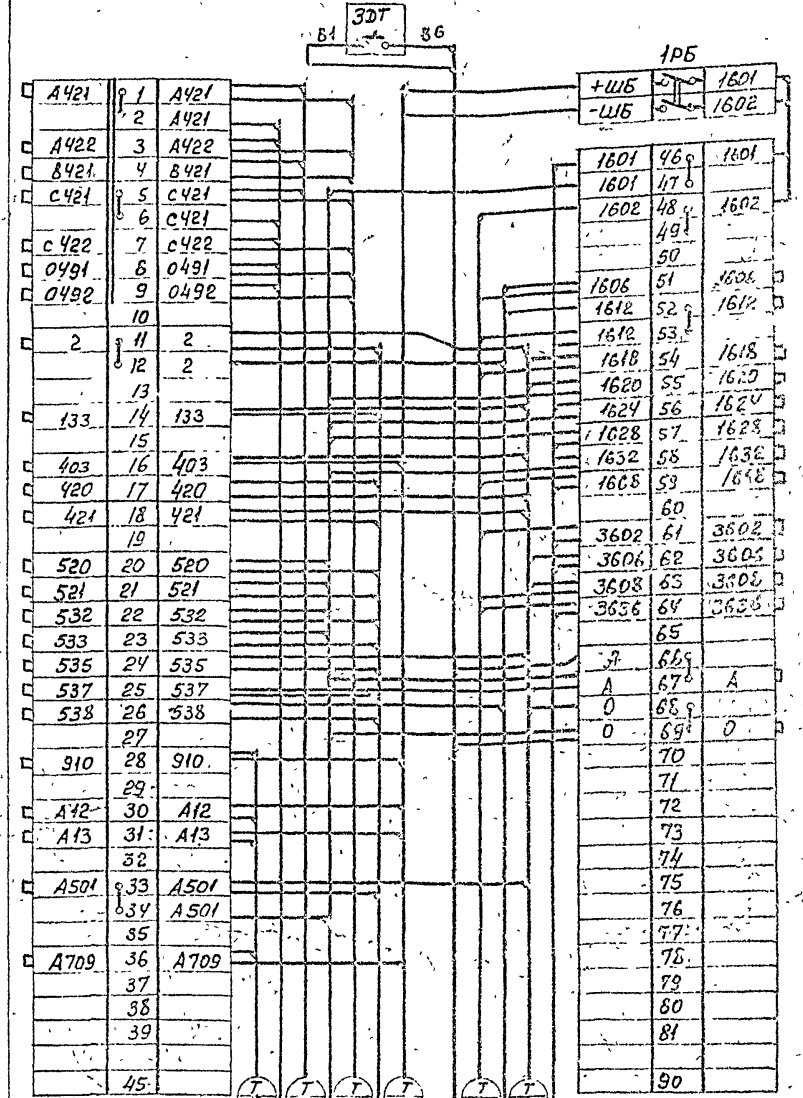 ЗДТ
Б1
Б6
1РБ
+ШБ 1601
-ШБ 1602
А421 1 А421
2 А421
А422 3 А422
В421 4 В421
С421 5 С421
6 С421
С422 7 С422
0491 8 0491
0492 9 0492
10
2 11 2
12 2
13
133 14 133
15
403 16 403
420 17 420
421 18 421
19
520 20 520
521 21 521
532 22 532
533 23 533
535 24 535
537 25 537
538 26 538
27
910 28 910
29
А12 30 А12
А13 31 А13
32
А501 33 А501
34 А501
35
А709 36 А709
37
38
39
45
1601 46 1601
1601 47
1602 48 1602
49
50
1606 51 1606
1612 52 1612
1612 53
1618 54 1618
1620 55 1620
1624 56 1624
1628 57 1628
1632 58 1632
59
60
3602 61 3602
3606 62 3606
3608 63 3608
3636 64 3636
65
А 66
А 67 А
0 68
0 69 0
70
71
72
73
74
75
76
77
78
79
80
81
90
Т Т Т Т Т Т